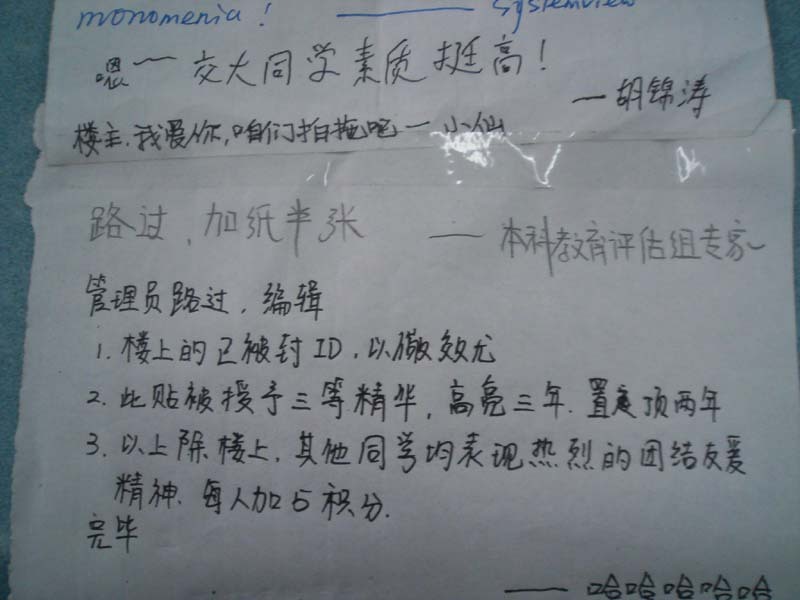 monomenia! —— Systemview
嗯一 交大同学素质挺高!
—胡锦涛
楼主,我爱你,咱们拍拖吧—小仙
路过,加纸半张 —— 本科教育评估组专家~
管理员路过,编辑
1. 楼上的已被封ID,以儆效尤
2. 此贴被授予三等精华,高亮三年.置顶两年
3. 以上除楼上,其他同学均表现热烈的团结友爱
精神.每人加5积分.
完毕
—— 哈哈哈哈哈